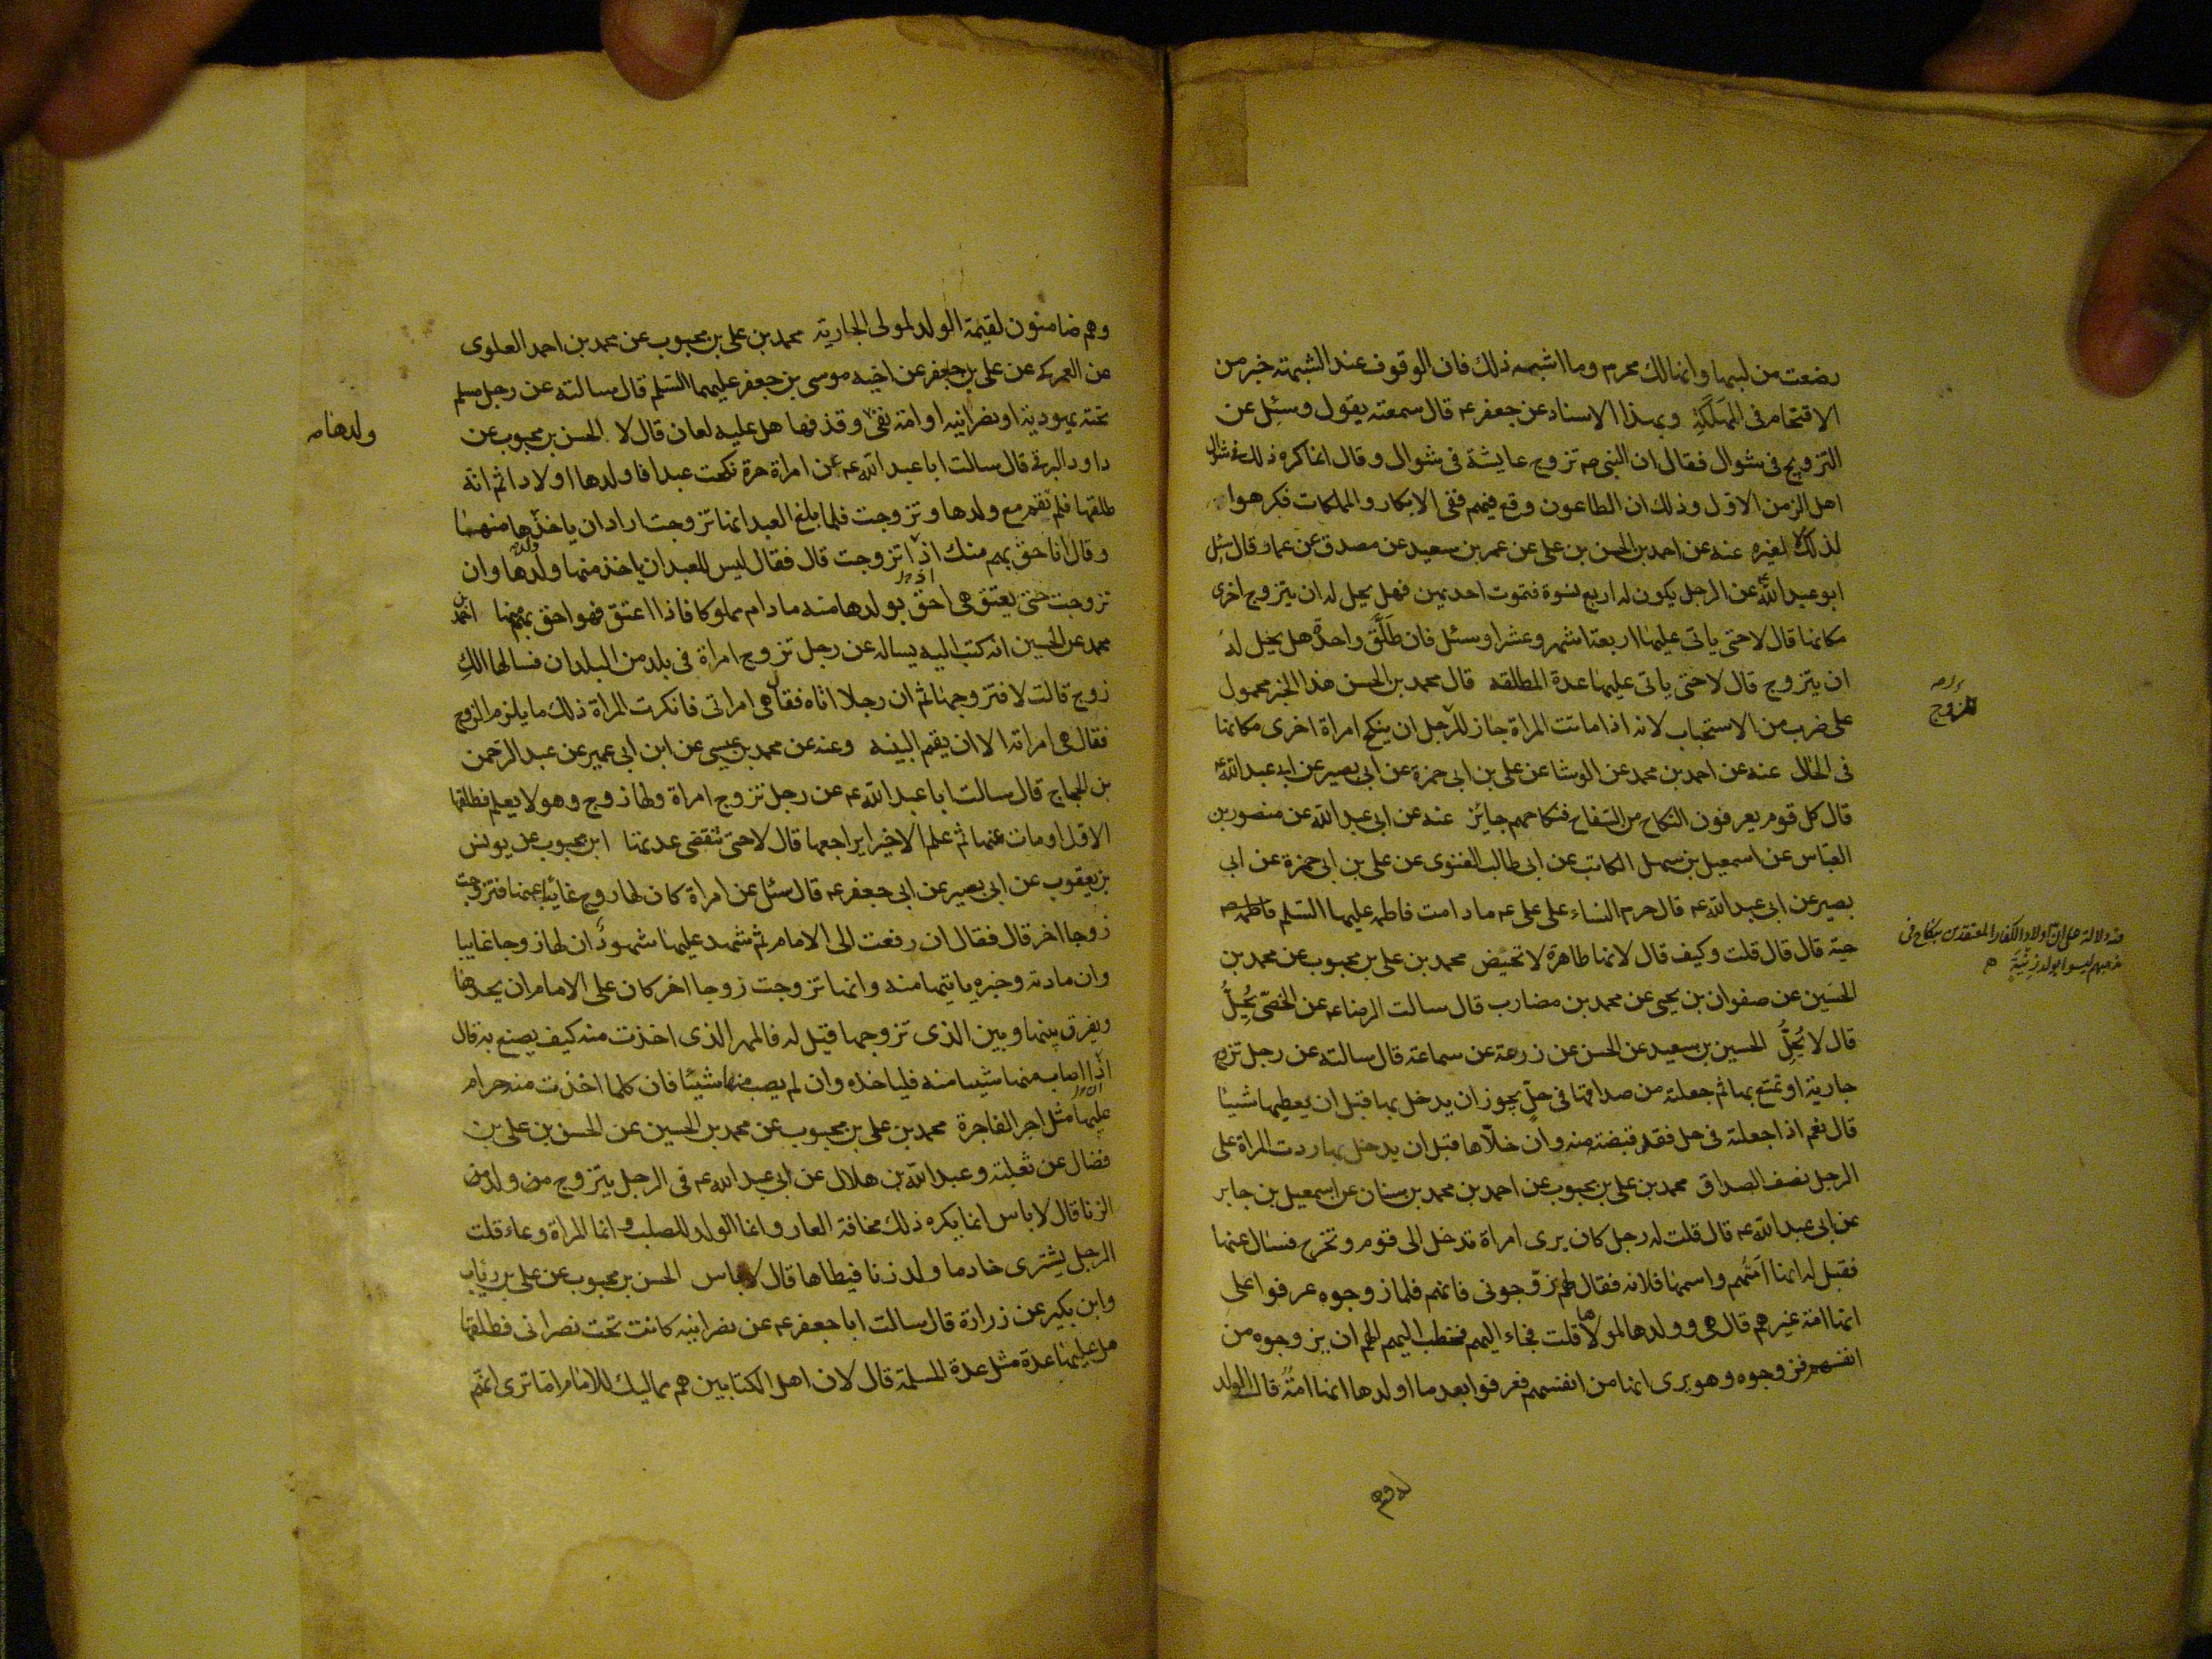 رضعت من لبنها وانها لك محرم وما اشبه ذلك فان الوقوف عند الشبهة خير من
الاقتحام فى الهَلَكَةِ وبهذا الاسناد عن جعفر عه قال سمعته يقول وسئل عن
التزويج فى شوال فقال ان النبى صه تزوج عايشة فى شوال وقال انما كره ذلك فى شوال
اهل الزمن الاول وذلك ان الطاعون وقع فيهم ففى الابكار والملكات فكرهوا
لذلك لا لغيره عنه عن احمد بن الحسن بن على عن عمر بن سعيد عن مصدق عن عمار قال سئل
ابو عبد الله عه عن الرجل يكون له اربع نسوة فتموت احديهن فهل يحل له ان يتزوج اخرى
مكانها قال لا حتى ياتى عليها اربعة اشهر وعشرا وسئل فان طَلَّقَ واحدةً هل يحل لهُ
ان يتزوج قال لا حتى ياتى عليها عدة المطلقه قال محمد بن الحسن هذا الخبر محمول
على ضرب من الاستحباب لانه اذا ماتت المراة جاز للرجل ان ينكح امراة اخرى مكانها
فى الحال عنه عن احمد بن محمد عن الوشا عن على بن ابى حمزة عن ابى بصير عن ابى عبد الله عه
قال كل قوم يعرفون النكاح من السفاح فنكاحهم جايز عنه عن ابى عبد الله عن منصور بن
العباس عن اسمعيل بن سهل الكاتب عن ابى طالب الغنوى عن على بن ابى حمزة عن ابى
بصير عن ابى عبد الله عه قال حرم النساء على على عه ما دامت فاطمه عليها السلم فاطمه
حية قال قال قلت وكيف قال لانها طاهرة لا تحيض محمد بن على بن محبوب عن محمد بن
الحسين عن صفوان بن يحيى عن محمد بن مضارب قال سالت الرضا عه عن الخصى يُحِلُّ
قال لا يُحِلُّ الحسين بن سعيد عن الحسن عن زرعة عن سماعة قال سالته عن رجل تزوج
جارية او تمتع بها ثم جعلته من صداقها فى حلٍ يجوز ان يدخل بها قبل ان يعطيها شيئا
قال نعم اذا جعلته فى حل فقد قبضته منه وان خلّاها قبل ان يدخل بها ردت المراة على
الرجل نصف الصداق محمد بن على بن محبوب عن احمد بن محمد بن سنان عن اسمعيل بن جابر
عن ابى عبد الله عه قال قلت له رجل كان يرى امراة تدخل الى قوم وتخرج فسال عنها
فقيل له انها اَمَتُهم واسمها فلانه فقال لهم زوّجونى فانهم فلما زوجوه عرفوا على
انها امة غيرهم قال هى وولدها لمولاها قلت فجاء اليهم فخطب اليهم لهم ان يزوجوه من
انفسهم فزوجوه وهو يرى انها من انفسهم فعرفوا بعد ما اولدها انها امةٌ قال الولد
لتزوج
فيه دلالة على ان اولاد الكفار المعتقدين بنكاح فى
مذهبهم ليسوا بولد زنية
له وهم
وهم ضامنون لقيمة الولد لمولى الجارية محمد بن على بن محبوب عن محمد بن احمد العلوى
عن العمركى عن على بن جعفر عن اخيه موسى بن جعفر عليهما السلم قال سالته عن رجل مسلم
تحته يهودية او نصرانيه او امة نفى وقذفها هل عليه لعان قال لا الحسن بن محبوب عن
داود البرقى قال سالت ابا عبد الله عه عن امراة حرة نكحت عبدا فاولدها اولادا ثم انه
طلقها فلم تقم مع ولدها وتزوجت فلما بلغ العبد انها تزوجت اراد ان ياخذها منهما
وقال انا حق بهم منك اذا تزوجت قال فقال ليس للعبد ان ياخذ منها ولدها وان
تزوجت حتى يعتق هى احق بولدها منه ما دام مملوكا فاذا اعتق فهو احق بهم منها احمد بن
محمد عن الحسين انه كتب اليه يساله عن رجل تزوج امراة فى بلد من البلدان فسالها الكِ
زوج قالت لا فتزوجها ثم ان رجلا اتاه فقال هى امراتى فانكرت المراة ذلك ما يلزم الزوج
فقال هى امراته الا ان يقيم البينه وعنه عن محمد بن عيسى عن ابن ابى عمير عن عبد الرحمن
بن الحجاج قال سالت ابا عبد الله عه عن رجل تزوج امراة ولها زوج وهو لا يعلم فطلقها
الاول او مات عنها ثم علم الاخير ايراجعها قال لا حتى تنقضى عدتها ابن محبوب عن يونس
بن يعقوب عن ابى بصير عن ابى جعفر عه قال سئل عن امراة كان لها زوج غائبا عنها فتزوجت
زوجا اخر قال فقال ان رفعت الى الامام ثم شهد عليها شهود ان لها زوجا غايبا
وان مادته وخبره ياتيها منه وانها تزوجت زوجا اخر كان على الامام ان يحدها
ويفرق بينها وبين الذى تزوجها قيل له فالمهر الذى اخذت منه كيف يصنع به قال
اذا اصاب منها شيئا منه فلياخذه وان لم يصب منها شيئا فان كلما اخذت منه حرام
عليها مثل اجر الفاجرة محمد بن على بن محبوب عن محمد بن الحسين عن الحسن بن على بن
فضال عن ثعلبة وعبد الله بن هلال عن ابى عبد الله عه فى الرجل يتزوج من ولد من
الزنا قال لا باس انما يكره ذلك مخافة العار وانما الولد للصلب وانما المراة وعاء قلت
الرجل يشترى خادما ولد زنا فيطاها قال لا باس الحسن بن محبوب عن على بن رئاب
وابن بكير عن زرارة قال سالت ابا جعفر عه عن نصرانيه كانت تحت نصرانى فطلقها
هل عليها عدة مثل عدة المسلمة قال لا لان اهل الكتابين هم مماليك للامام اما ترى انهم
ولدها